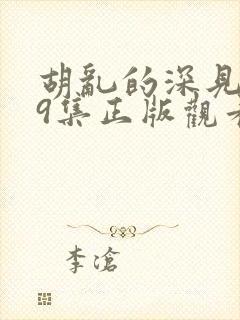 胡亂的深見
9集正版觀看
李滄